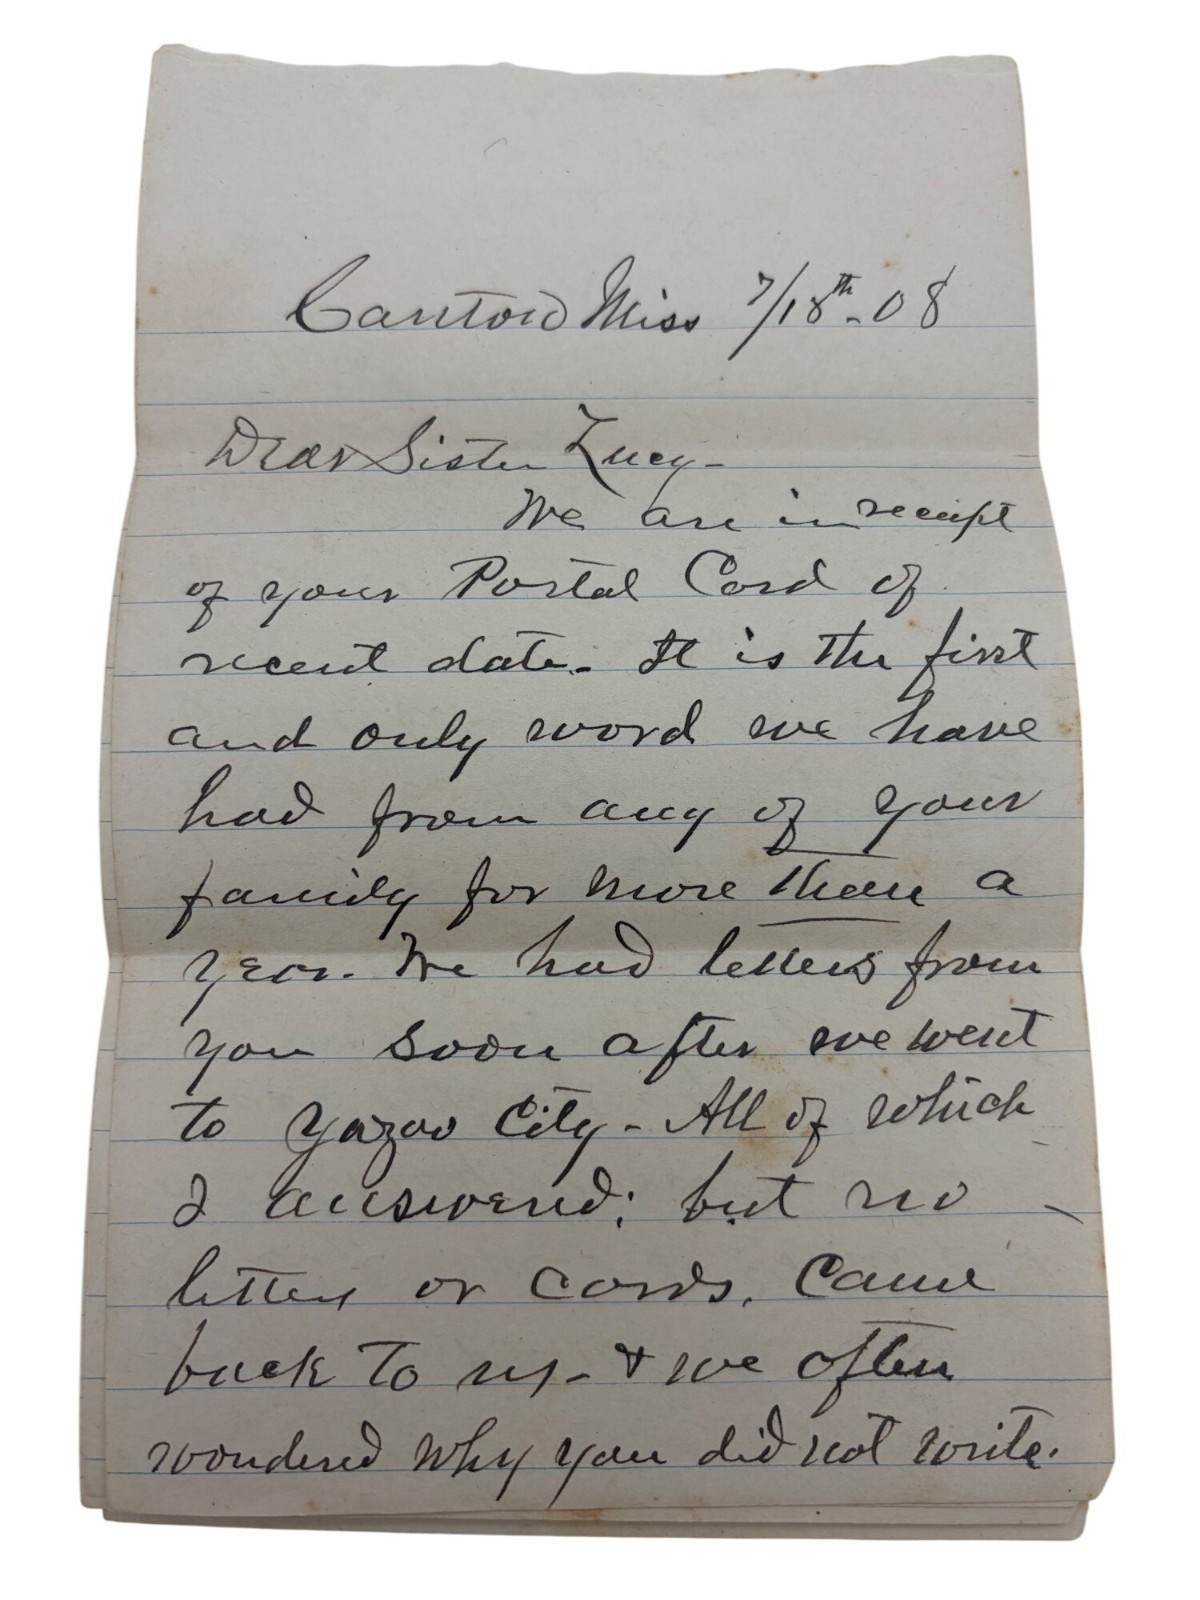 Canton Miss 7/18th-08
Dear Sister Lucy-
We are in receipt
of your Postal Card of
recent date- It is the first
and only word we have
had from any of your
family for more than a
year. We had letters from
you soon after we went
to Yazoo City- All of which
I answered; but no
letters or cards, came
back to us- & we often
wondered why you did not write.